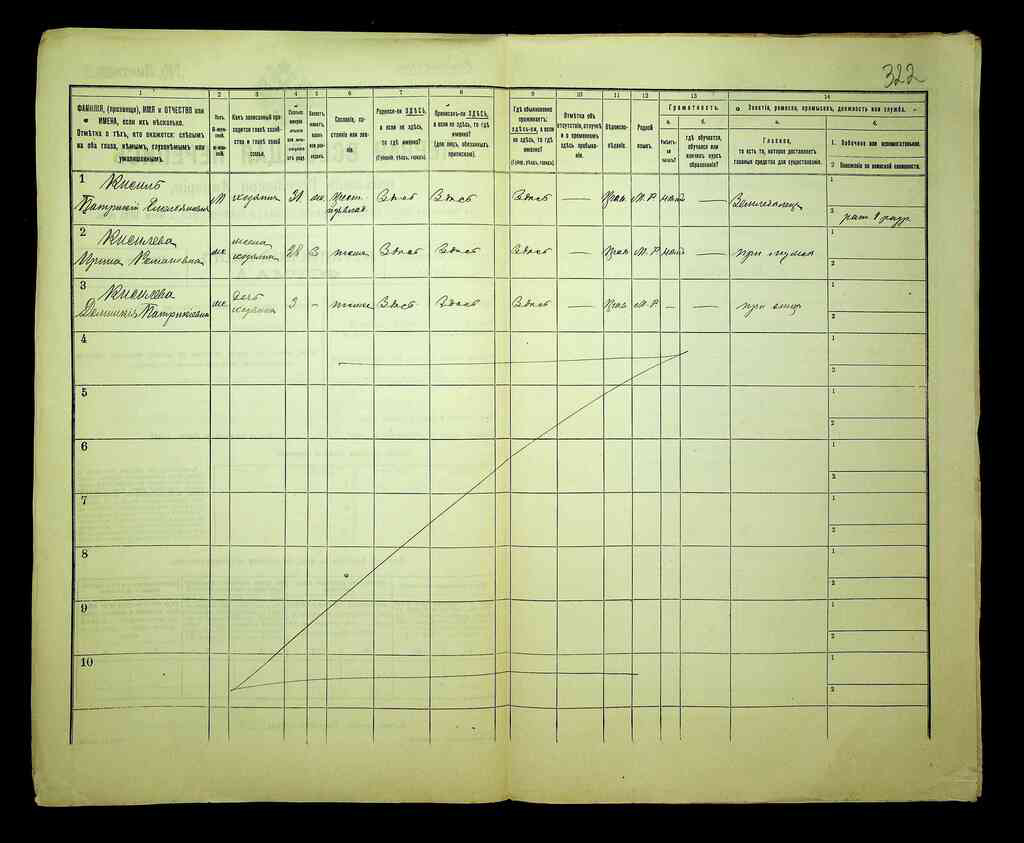 322
1 2 3 4 5 6 7 8 9 10 11 12 13 14
ФАМИЛІЯ, (прозвище), ИМЯ и ОТЧЕСТВО или
ИМЕНА, если ихъ нѣсколько.
Отмѣтка о тѣхъ, кто окажется: слѣпымъ
на оба глаза, нѣмымъ, глухонѣмымъ или
умалишеннымъ.
Полъ.
Какъ записанный при-
ходится главѣ хозяй-
ства и главѣ своей
семьи.
Сословіе, со-
стояніе или зва-
ніе.
Родился-ли ЗДѢСЬ,
а если не здѣсь,
то гдѣ именно?
(Губернія, уѣздъ, городъ).
Приписанъ-ли ЗДѢСЬ,
а если не здѣсь, то гдѣ
именно?
(для лицъ, обязанныхъ
припискою).
Гдѣ обыкновенно
проживаетъ:
здѣсь-ли, а если
не здѣсь, то гдѣ
именно?
(Губер., уѣздъ, городъ).
Отмѣтка объ
отсутствіи, отлучкѣ
и о временномъ
здѣсь пребыва-
ніи.
Вѣроиспо-
вѣданіе.
Родной
языкъ.
Грамотность.
а. б.
Умѣетъ-ли
читать?
гдѣ обучается,
обучался или
кончилъ курсъ
образованія?
Занятіе, ремесло, промыселъ, должность или служба.
а. б.
Главное,
то есть то, которое доставляетъ
главныя средства для существованія.
1. Побочное или вспомогательное.
2. Положеніе по воинской повинности.
1 Кисиль
Патрикій м хозяинъ 31 Крест. Здѣсь Здѣсь Здѣсь — Прав М.Р нѣтъ — Земледѣлецъ
1
2 рат 1 разр
2 Кисилева
Ирина Романовна ж жена
хозяина 28 З тоже Здѣсь Здѣсь Здѣсь — Прав М.Р нѣтъ — при мужѣ
1
2
3 Кисилева
ж дочь
хозяина 3 - тоже Здѣсь Здѣсь Здѣсь — Прав М.Р — — при отцѣ
1
2
4
1
2
5
1
2
6
1
2
7
1
2
8
1
2
9
1
2
10
1
2